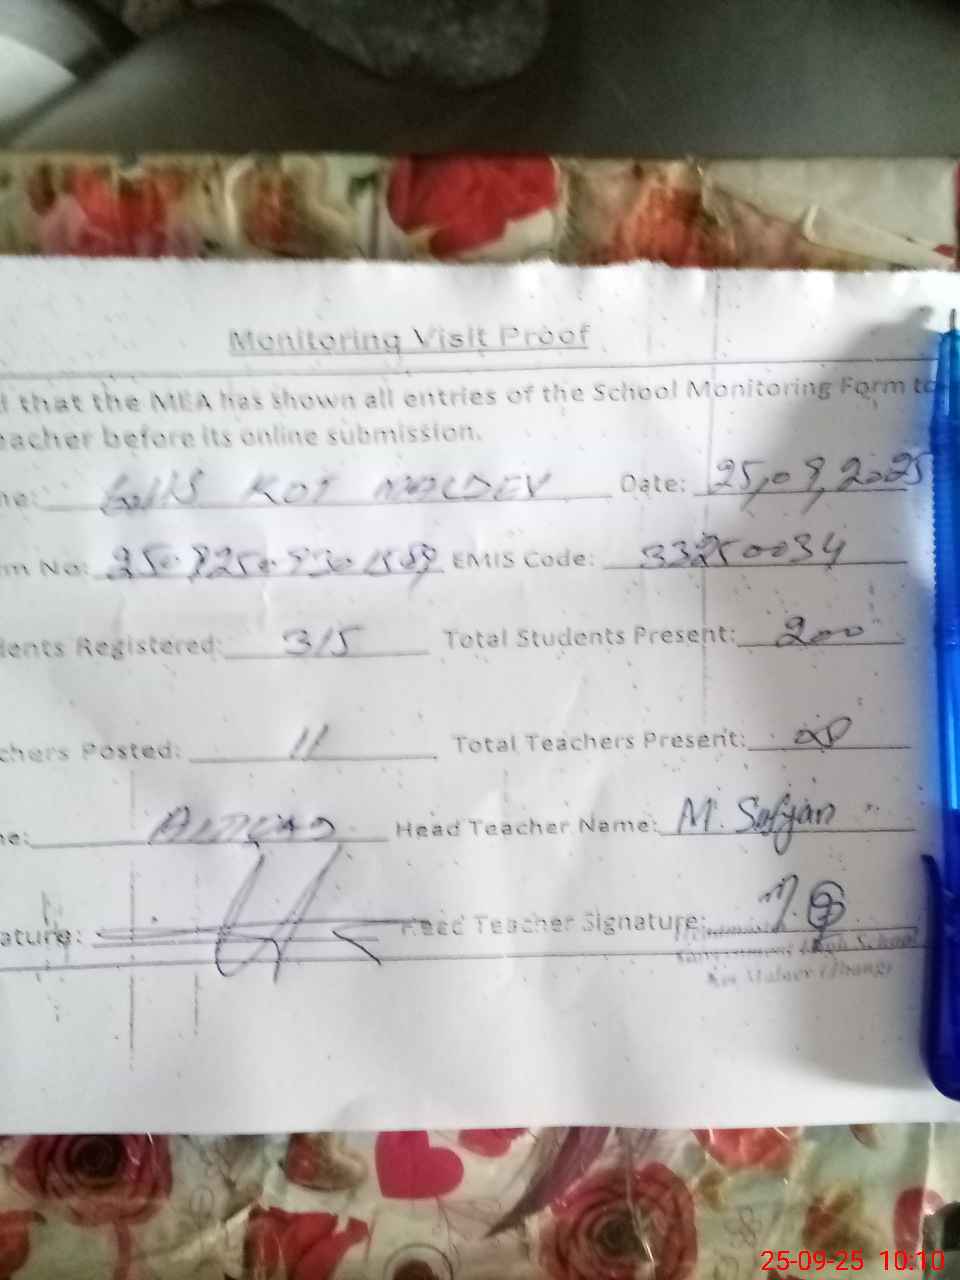 Monitoring Visit Proof
that the MEA has shown all entries of the School Monitoring Form to
eacher before its online submission.
me: KOT Date: 25,09,2025
m No: EMIS Code: 33250034
dents Registered: 315 Total Students Present: 200
chers Posted: 11 Total Teachers Present:
me: Head Teacher Name: M. Sofyan
ature: Head Teacher Signature:
High School
25-09-25 10:10